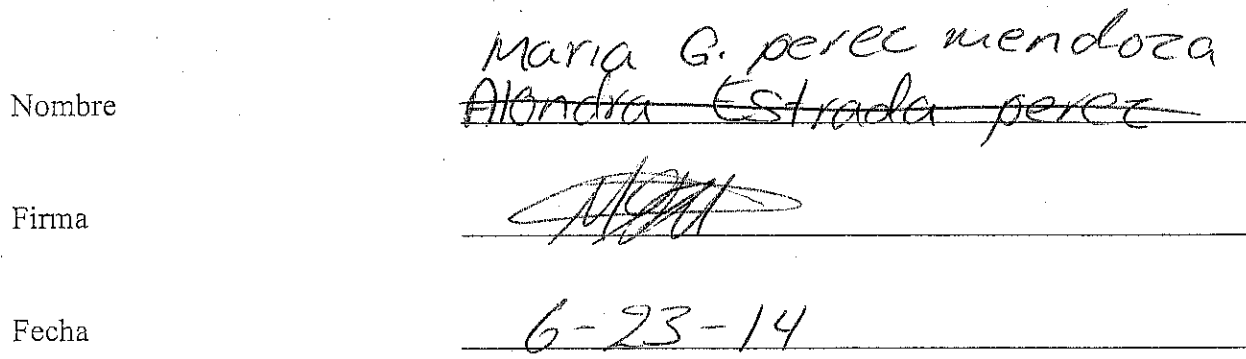 Maria G. perec mendoza
Nombre Alondra Estrada perez
Firma
Fecha 6-23-14